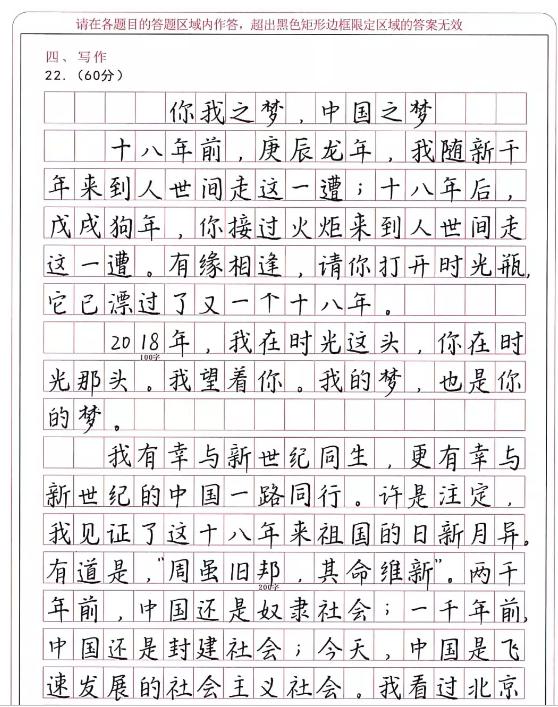 请在各题目的答题区域内作答，超出黑色矩形边框限定区域的答案无效
四、写作
22.（60分）
你我之梦，中国之梦
十八年前，庚辰龙年，我随新千
年来到人世间走这一遭；十八年后，
戊戌狗年，你接过火炬来到人世间走
这一遭。有缘相逢，请你打开时光瓶，
它已漂过了又一个十八年。
2018年，我在时光这头，你在时
100字
光那头。我望着你。我的梦，也是你
的梦。
我有幸与新世纪同生，更有幸与
新世纪的中国一路同行。许是注定，
我见证了这十八年来祖国的日新月异。
有道是，“周虽旧邦，其命维新”。两千
200字
年前，中国还是奴隶社会；一千年前，
中国还是封建社会；今天，中国是飞
速发展的社会主义社会。我看过北京